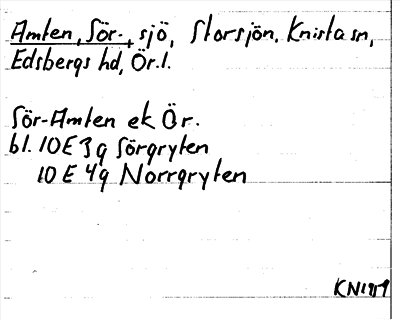 Amten, Sör-, sjö, Storsjön, Knista sn,
Edsbergs hd, Ör. l.
Sör-Amten ek Ör.
bl. 10E 3g Sörgryten
10E 4g Norrgryten